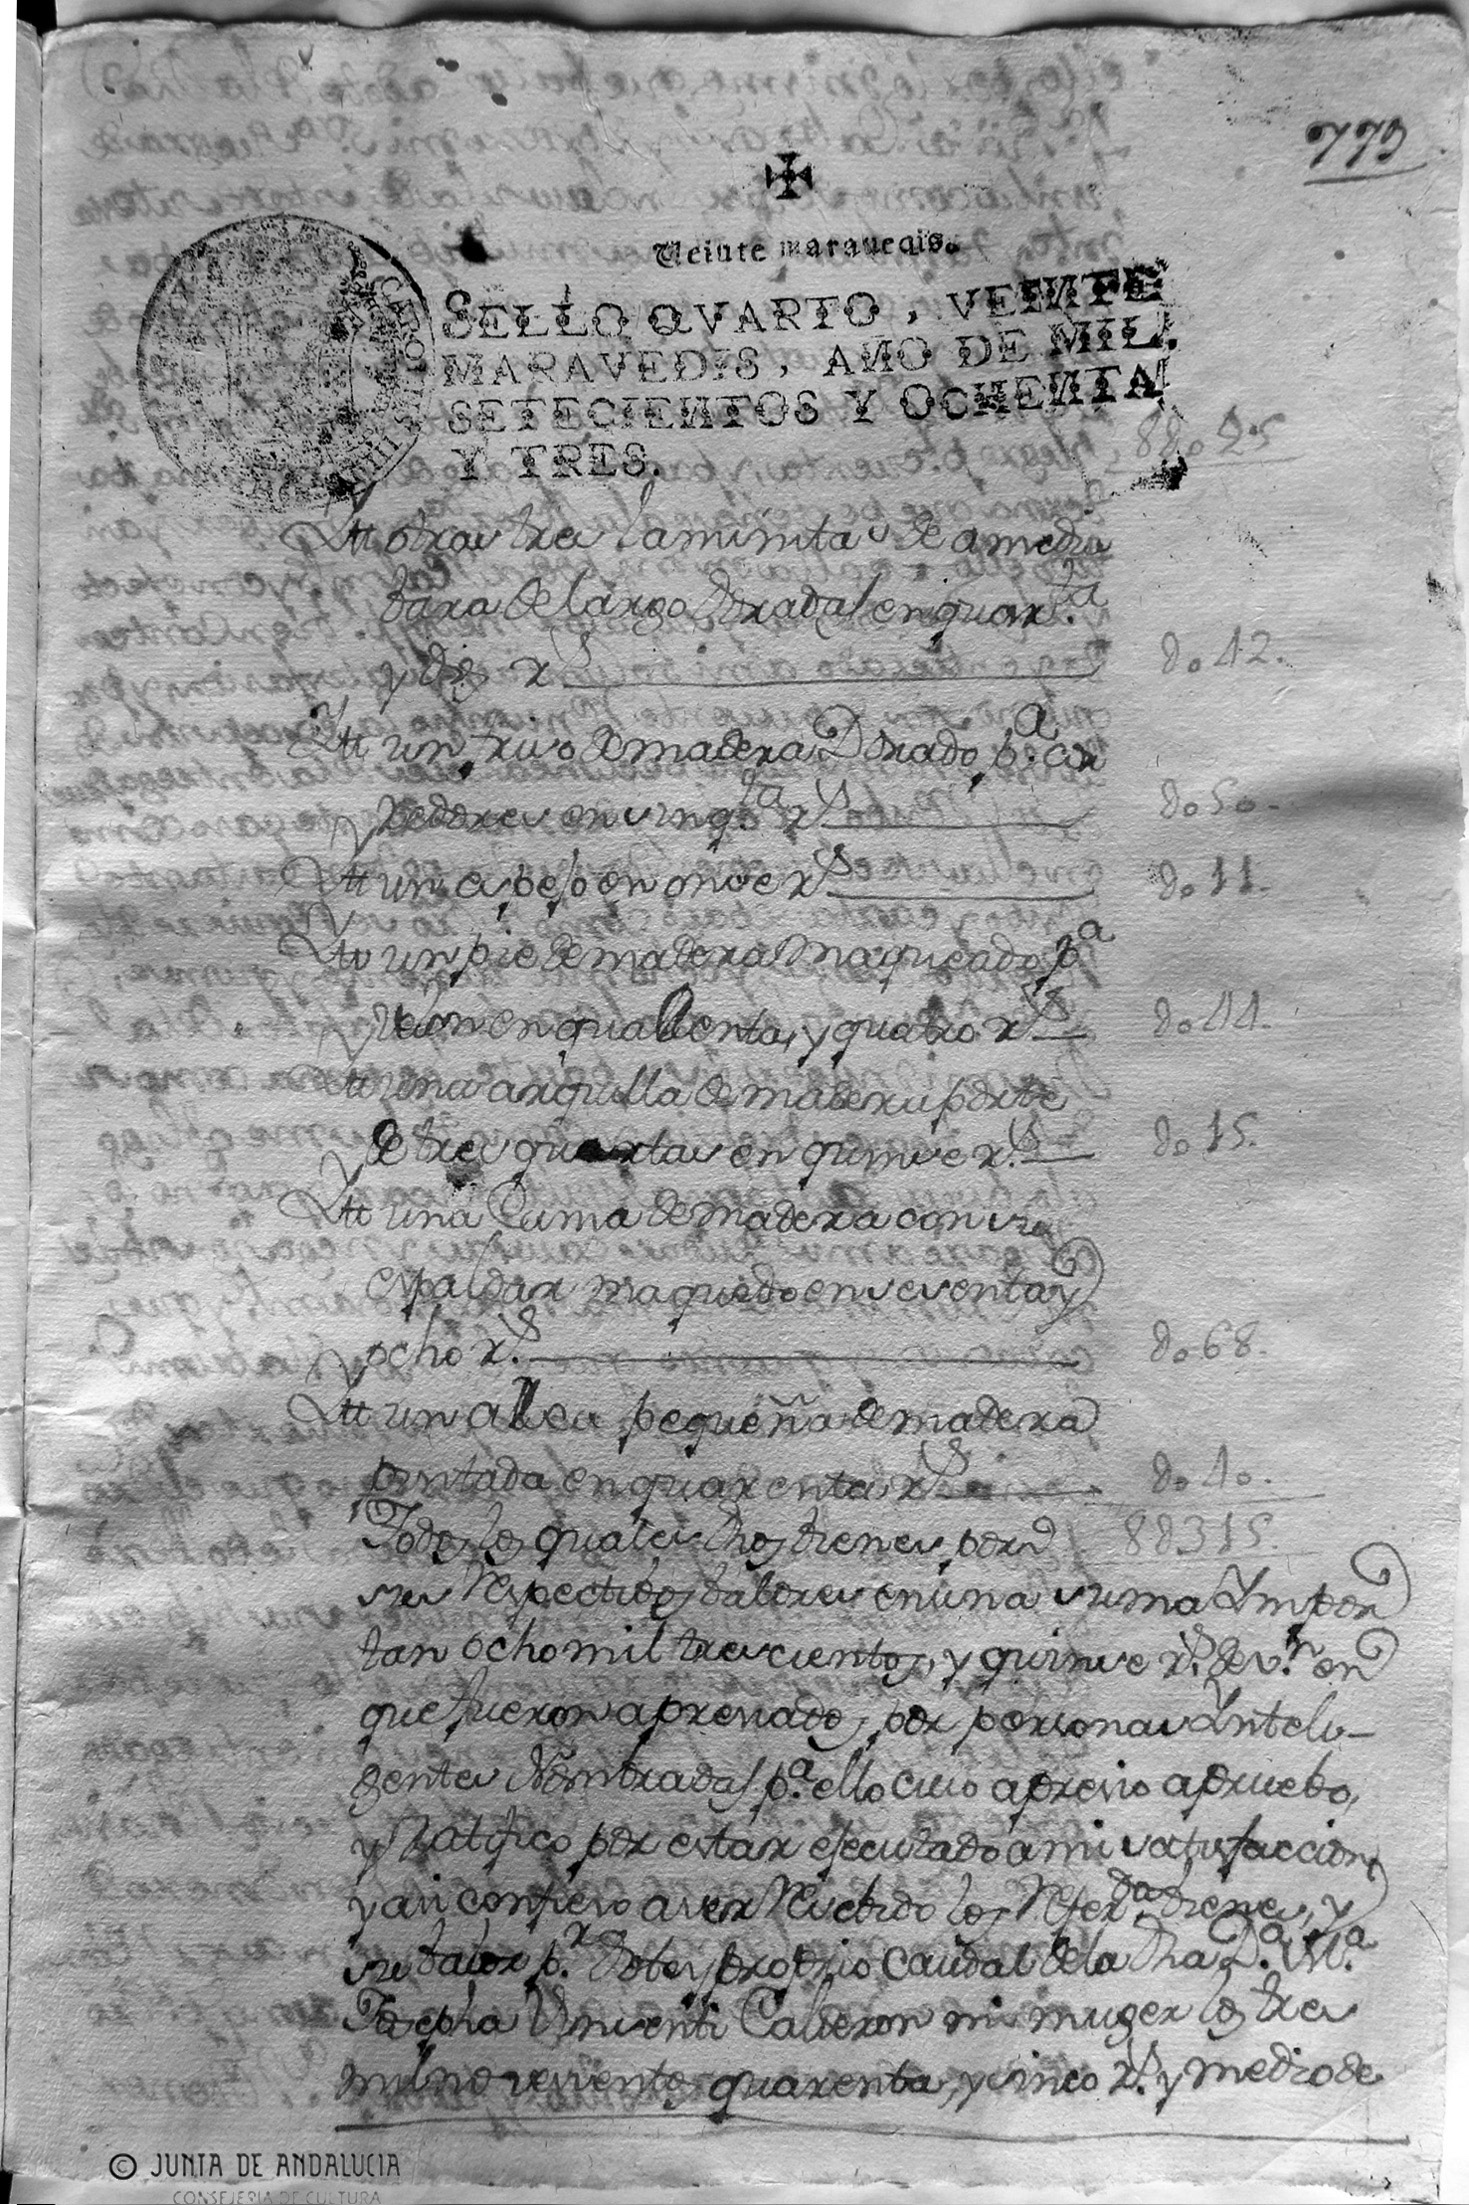 779
Veinte maravedis.
SELLO QVARTO, VEINTE
MARAVEDIS, AÑO DE MIL
SETECIENTOS Y OCHENTA
Y TRES.
88025
Ytt otras tres laminitas de a media
bara de largo doradas en quar.ta
y dos r.s
do42.
Ytt un friso de madera Dorado p.a cor
redores en sinq.ta r.s
do50.
Ytt un espejo en onse r.s
do11.
Ytt un pie de madera Maqueado p.a
velon en quarenta, y quatro r.s
do44.
Ytt una arquilla de madera porte
de tres quartas en quinse r.s
do15.
Ytt una Cama de madera con su
espaldar maqueado en sesenta y
ocho r.s
do68.
Ytt un arca pequeña de madera
pintada en quarenta r.s
do40.
88315.
Todos los quales dhos bienes por
sus respectibos balores en una suma Ympor
tan ocho mil trescientos, y quinse r.s de v.n en
que fueron apresiados por personas Ynteli-
gentes Nombradas p.a ello cuio apresio apruebo,
y ratifico por estar efecutado a mi satisfaccion
y asi confieso aver resebido los refer.dos bienes, y
su balor p.r Dote y proprio caudal de la dha D.a M.a
Josepha Vinsenti Calderon mi muger los tres
mil novesientos quarenta, y sinco r.s y medio de
© JUNTA DE ANDALUCIA
CONSEJERIA DE CULTURA